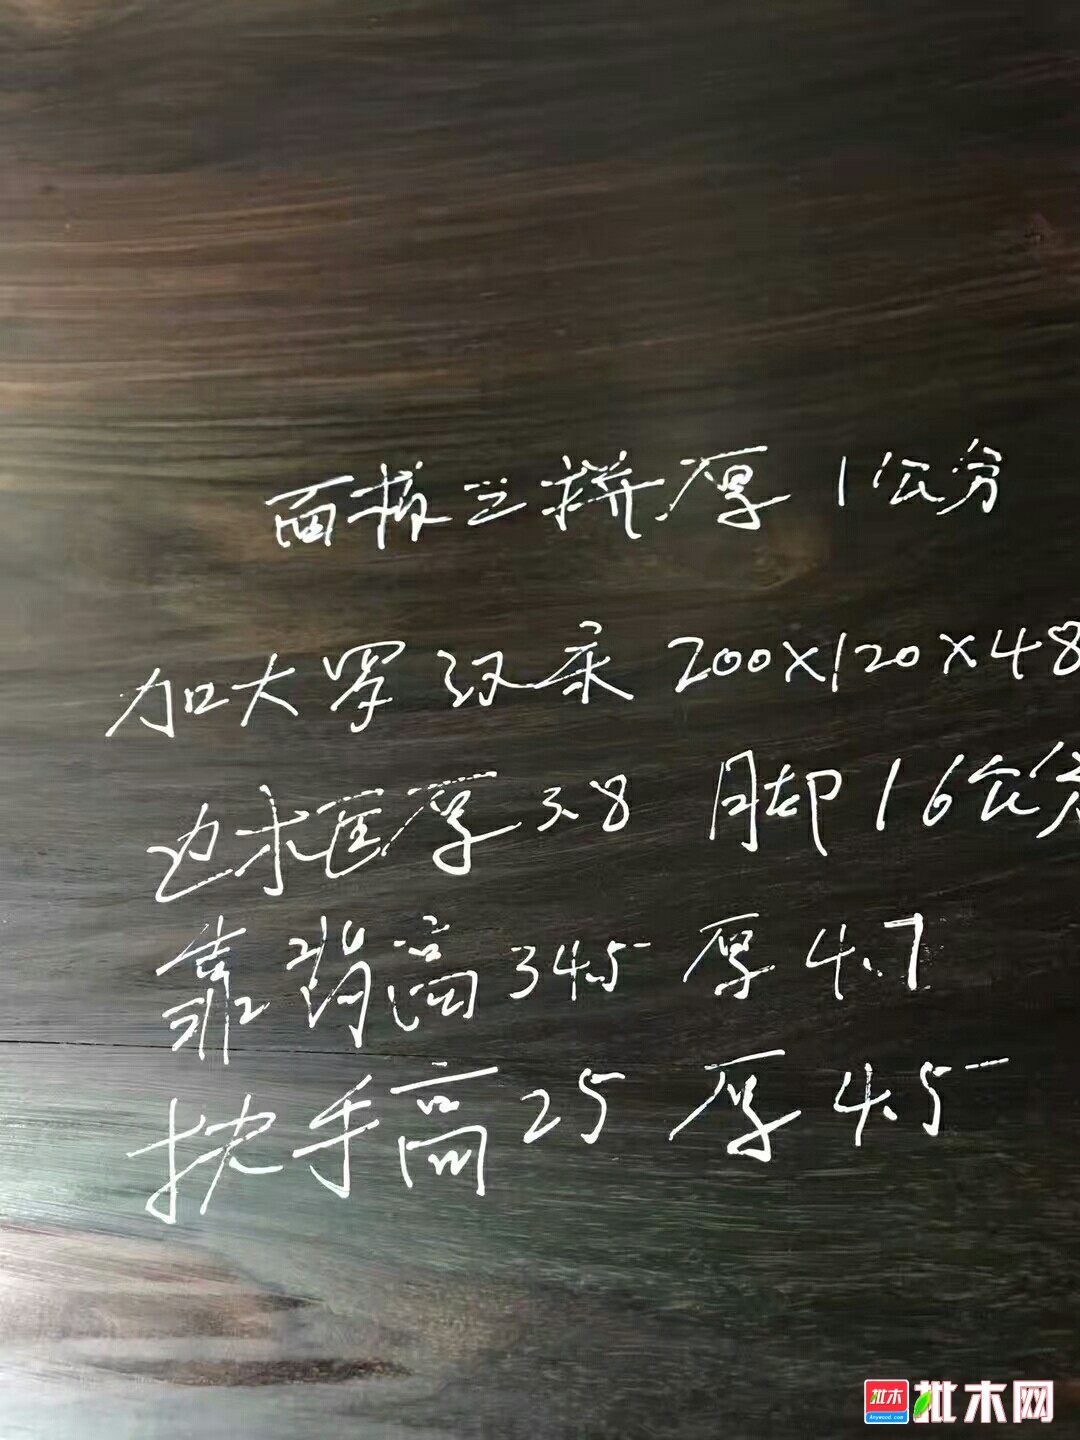 面板三拼厚1公分
加大罗汉床200×120×48
边求框厚3.8 脚16公分
靠背高34.5 厚4.7
扶手高25 厚4.5
批木
Anywood.com
批木网